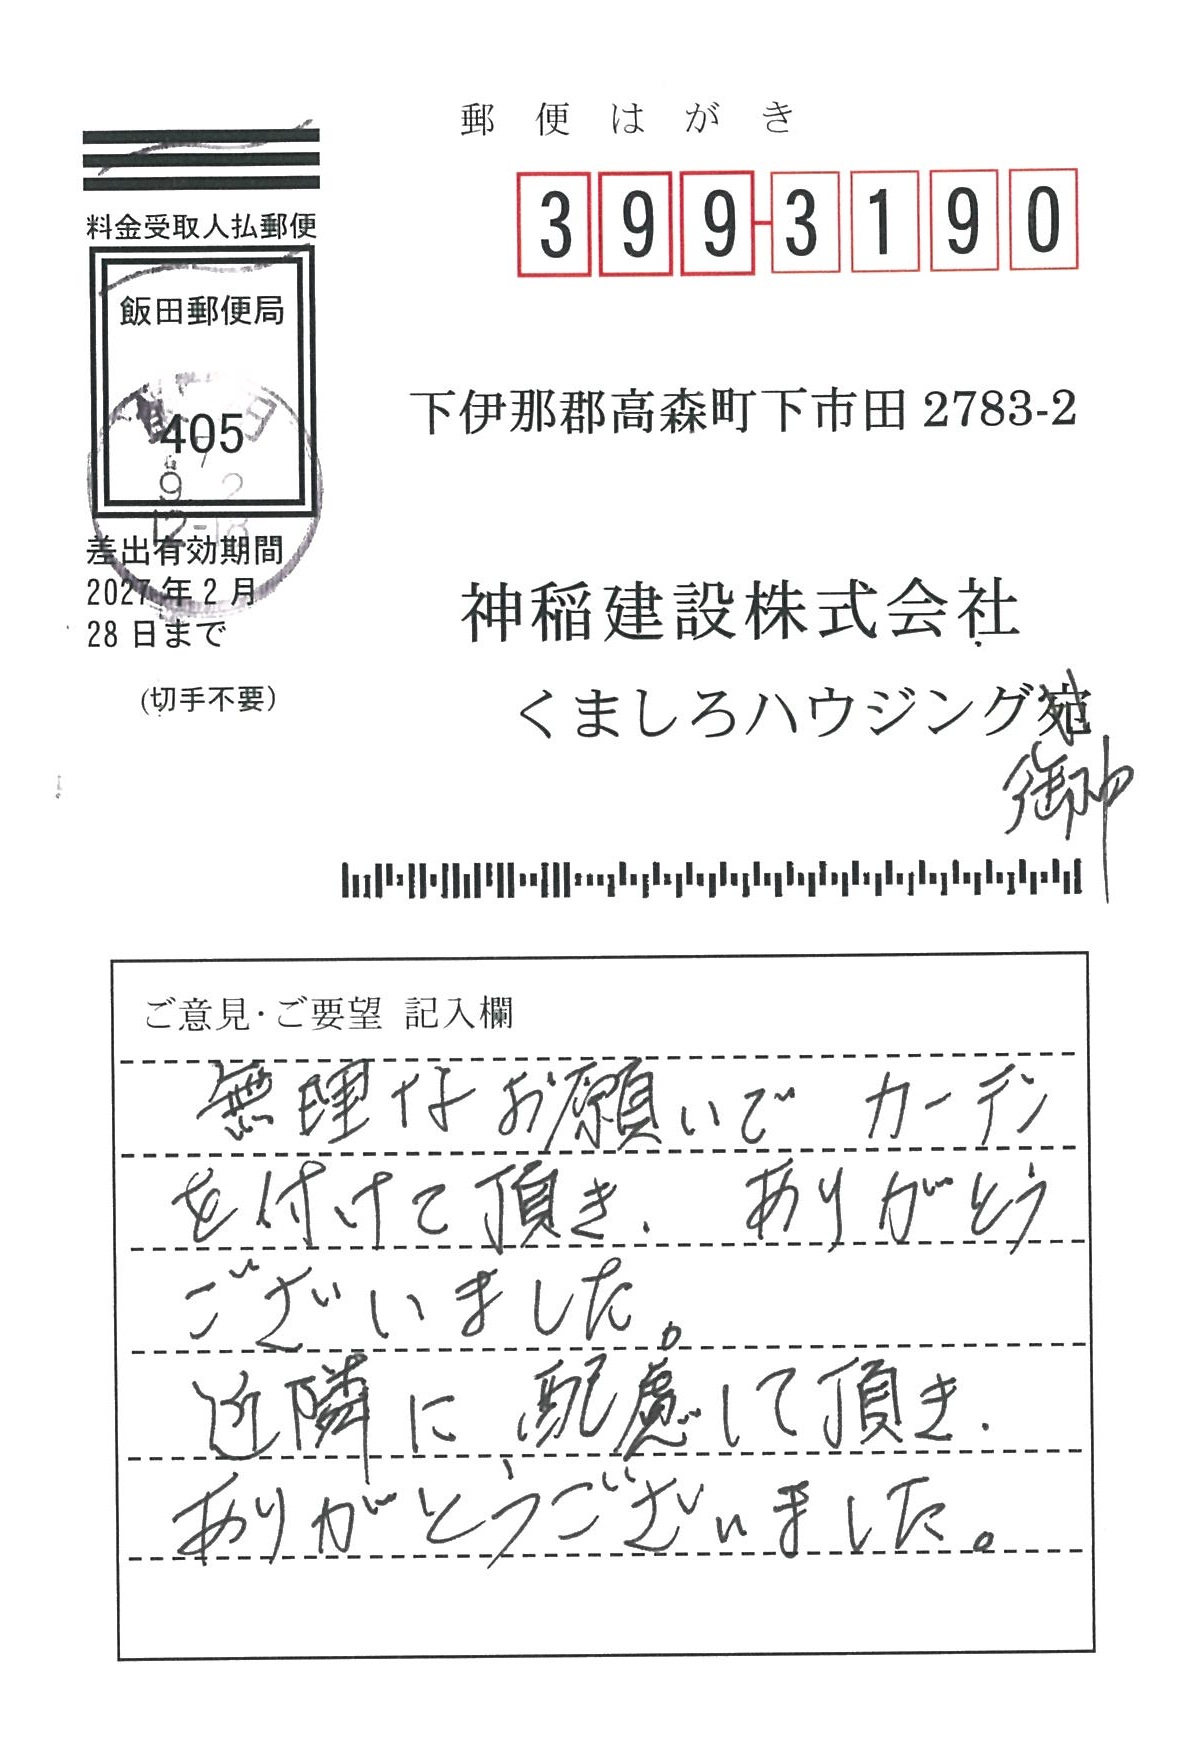 郵便はがき
料金受取人払郵便
399-3190
飯田郵便局
405
9 2
12-18
差出有効期間
2027年2月
28日まで
(切手不要)
下伊那郡高森町下市田2783-2
神稲建設株式会社
くましろハウジング宛
御中
ご意見・ご要望 記入欄
無理なお願いで カーテン
を付けて頂き. ありがとう
ございました。
近隣に 配慮して頂き.
ありがとうございました。